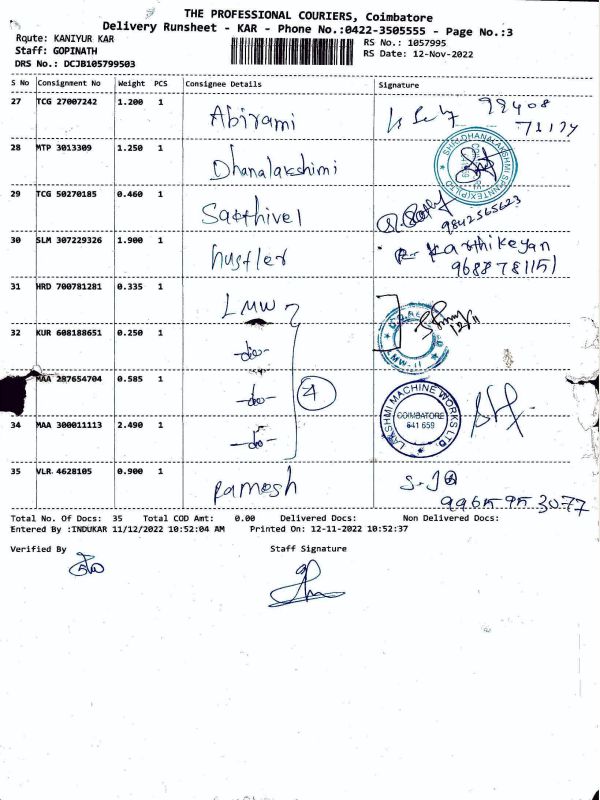 THE PROFESSIONAL COURIERS, Coimbatore
Delivery Runsheet - KAR - Phone No.:0422-3505555 - Page No.:3
Route: KANIYUR KAR
RS No.: 1057995
Staff: GOPINATH
RS Date: 12-Nov-2022
DRS No.: DCJB105799503
S No Consignment No Weight PCS Consignee Details Signature
27 TCG 27007242 1.200 1 Abirami 98408
71174
28 MTP 3013309 1.250 1 Dhanalakshimi SHRI DHANALAKSHMI SPINNTEX (P) LTD
29 TCG 50270185 0.460 1 Sakthivel 9842565623
30 SLM 307229326 1.900 1 hustler R. Karthikeyan
9688781151
31 HRD 700781281 0.335 1 LMW LMW-II
32 KUR 608188651 0.250 1 -do-
MAA 287654704 0.585 1 -do- 4 LAKSHMI MACHINE WORKS LTD. COIMBATORE 641 659
34 MAA 300011113 2.490 1 -do-
35 VLR 4628105 0.900 1 Ramesh
9965953077
Total No. Of Docs: 35 Total COD Amt: 0.00 Delivered Docs: Non Delivered Docs:
Entered By :INDUKAR 11/12/2022 10:52:04 AM Printed On: 12-11-2022 10:52:37
Verified By Staff Signature